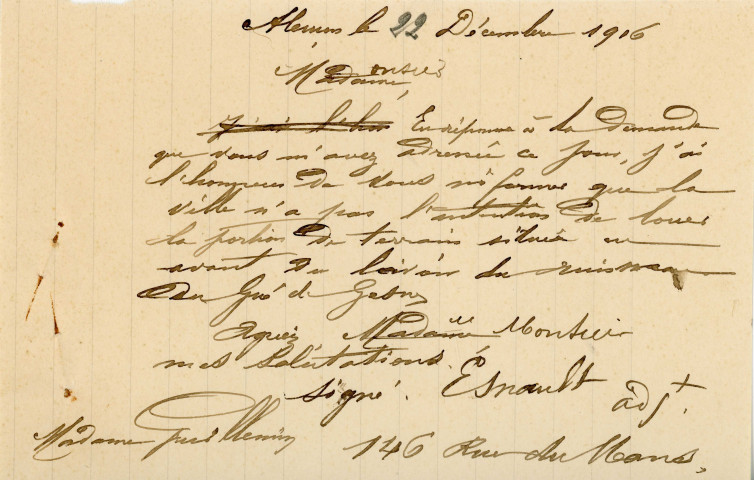 Alençon le 22 Décembre 1916
Madame, onsieur
J'ai l'hon En réponse à la demande
que vous m'avez adressée ce jour, j'ai
l'honneur de vous informer que la
ville n'a pas l'intention de louer
la portion de terrain située en
avant du lavoir du ruisseau
du Gué de Gesnes
Agréez Madame Monsieur
mes salutations.
signé. Esnault adjt
Madame Guillemin 146 Rue du Mans,